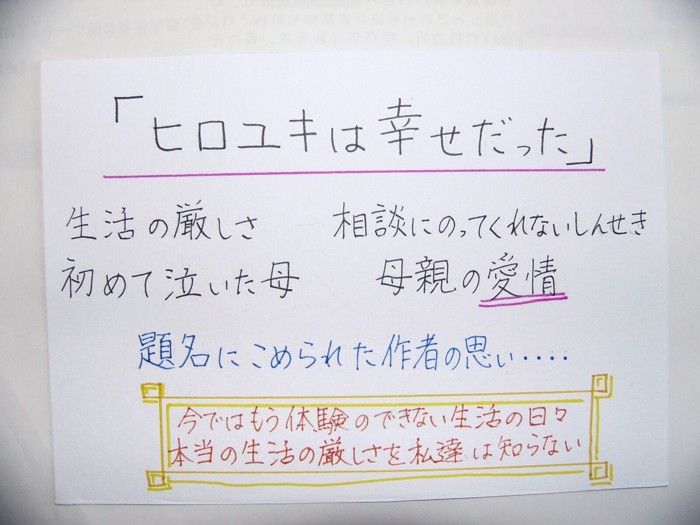 「ヒロユキは幸せだった」
生活の厳しさ 相談にのってくれないしんせき
初めて泣いた母 母親の愛情
題名にこめられた作者の思い‥‥
今ではもう体験のできない生活の日々
本当の生活の厳しさを私達は知らない